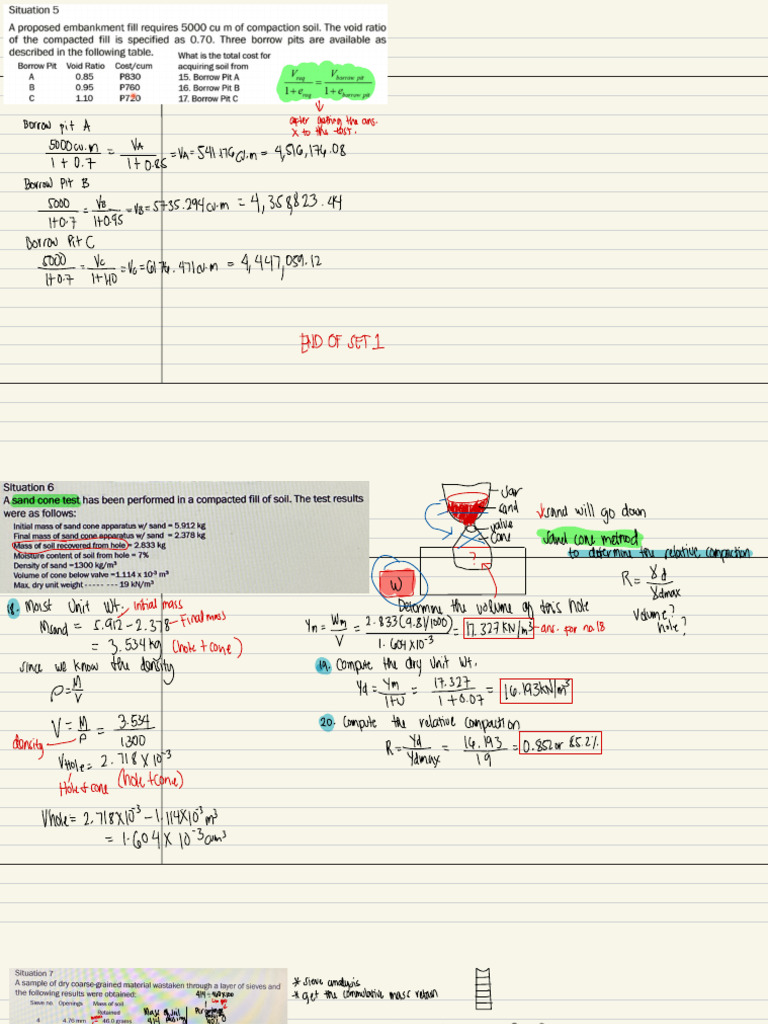 Situation 5
A proposed embankment fill requires 5000 cu m of compaction soil. The void ratio
of the compacted fill is specified as 0.70. Three borrow pits are available as
described in the following table.
What is the total cost for
Borrow Pit Void Ratio Cost/cum acquiring soil from
A 0.85 P830 15. Borrow Pit A
B 0.95 P760 16. Borrow Pit B
C 1.10 P720 17. Borrow Pit C
V req / 1 + e req = V borrow pit / 1 + e borrow pit
after getting the ans.
X to the cost.
Borrow pit A
5000 cu.m / 1 + 0.7 = VA / 1+0.85 = VA = 5411.176 cu.m = 4,516,176.08
Borrow Pit B
5000 / 1+0.7 = VB / 1+0.95 = VB = 5735.294 cu.m = 4,358,823.44
Borrow Pit C
5000 / 1+0.7 = VC / 1+1.10 = VC = 6176.471 cu.m = 4,447,059.12
END OF SET 1
Situation 6
A sand cone test has been performed in a compacted fill of soil. The test results
were as follows:
Initial mass of sand cone apparatus w/ sand = 5.912 kg
Final mass of sand cone apparatus w/ sand = 2.378 kg
Mass of soil recovered from hole = 2.833 kg
Moisture content of soil from hole = 7%
Density of sand =1300 kg/m³
Volume of cone below valve =1.114 x 10⁻³ m³
Max. dry unit weight - - - - - - - 19 kN/m³
Jar
sand
valve
cone
?
W
sand will go down
sand cone method
to determine the relative compaction
R = γd / γdmax
Volume?
hole?
Determine the volume of this hole
18. Moist Unit Wt. Initial mass
Msand = 5.912 - 2.378 - Final mass
= 3.534 kg (hole + cone)
since we know the density
ρ = M / V
V = M / ρ = 3.534 / 1300
density
VHole = 2.718 X 10⁻³
Hole + cone (hole + cone)
Vhole = 2.718X10⁻³ - 1.114X10⁻³ m³
= 1.604 X 10⁻³
γm = Wm / V = 2.833(9.81/1000) / 1.604X10⁻³ = 17.327 KN/m³ - ans. for no.18
19. Compute the dry Unit Wt.
γd = γm / 1+ω = 17.327 / 1+0.07 = 16.193 kN/m³
20. Compute the relative compaction
R = γd / γdmax = 16.193 / 19 = 0.852 or 85.2%
Situation 7
A sample of dry coarse-grained material wastaken through a layer of sieves and
the following results were obtained:
Sieve no. Openings Mass of soil
Retained
4 4.76 mm 46.0 grams
* sieve analysis
* get the commulative mass retain